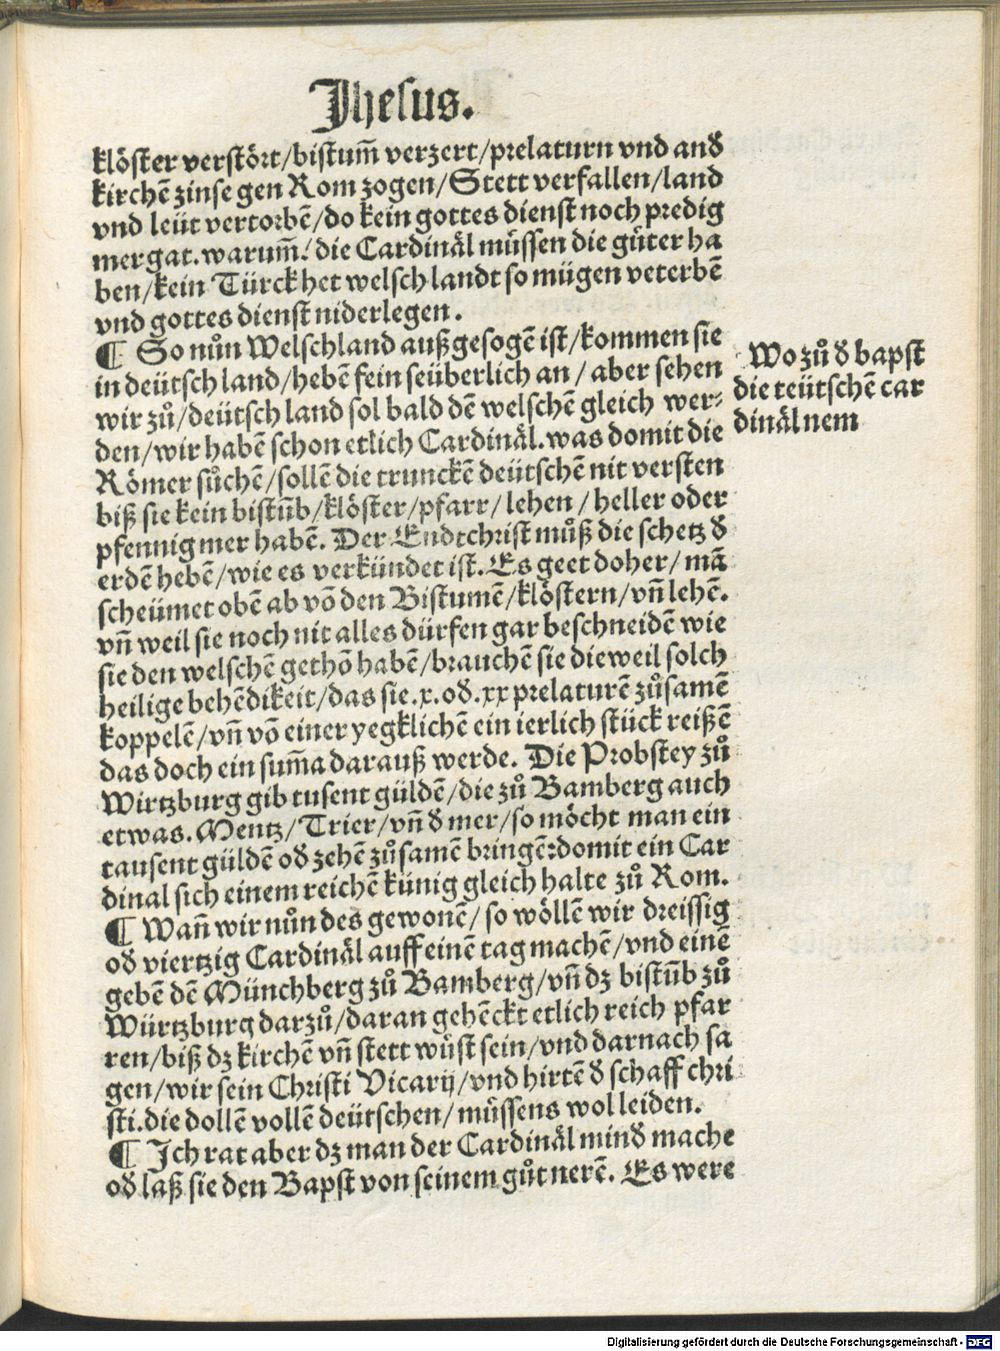 Jhesus.
klöster verstört/bistum̃ verzert/prelaturn vnd and̄
kirchẽ zinse gen Rom zogen/Stett verfallen/land
vnd leüt vertorbẽ/do kein gottes dienst noch predig
mer gat. warum̃? die Cardinäl müssen die gůter ha
ben/kein Türck het welsch landt so mügen veterbẽ
vnd gottes dienst niderlegen.
¶ So nůn Welschland außgesogẽ ist/kommen sie
in deütsch land/hebẽ fein seüberlich an/aber sehen
wir zů/deütsch land sol bald dẽ welschẽ gleich wer⸗
den/wir habẽ schon etlich Cardinäl. was domit die
Römer sůchẽ/sollẽ die trunckẽ deütschẽ nit versten
biß sie kein bistũb/klöster/pfarr/lehen/heller oder
pfennig mer habẽ. Der Endtchrist můß die schetz d̄
erdẽ hebẽ/wie es verkündet ist. Es geet doher/mã
scheümet obẽ ab võ den Bistumẽ/klöstern/vñ lehẽ.
vñ weil sie noch nit alles dürfen gar beschneidẽ wie
sie den welschẽ gethõ habẽ/brauchẽ sie dieweil solch
heilige behẽdikeit/das sie .x. od̄ .xx prelaturẽ zůsamẽ
koppelẽ/vñ võ einer yegklichẽ ein ierlich stück reißẽ
das doch ein sum̃a darauß werde. Die Probstey zů
Wirtzburg gib tusent güldẽ/die zů Bamberg auch
etwas. Mentz/Trier/vñ d̄ mer/so möcht man ein
tausent güldẽ od̄ zehẽ zůsamẽ bringẽ: domit ein Car
dinal sich einem reichẽ künig gleich halte zů Rom.
¶ Wañ wir nůn des gewonẽ/so wöllẽ wir dreissig
od̄ viertzig Cardinäl auff einẽ tag machẽ/vnd einẽ
gebẽ dẽ Münchberg zů Bamberg/vñ dz bistũb zů
Würtzburg darzů/daran gehẽckt etlich reich pfar
ren/biß dz kirchẽ vñ stett wůst sein/vnd darnach sa
gen/wir sein Christi Vicarij/vnd hirtẽ d̄ schaff chri
sti. die dollẽ vollẽ deütschen/müssens wol leiden.
¶ Ich rat aber dz man der Cardinäl mind̄ mache
od̄ laß sie den Bapst von seinem gůt nerẽ. Es were
Wo zů d̄ bapst
die teütschẽ car
dinäl nem
Digitalisierung gefördert durch die Deutsche Forschungsgemeinschaft - DFG